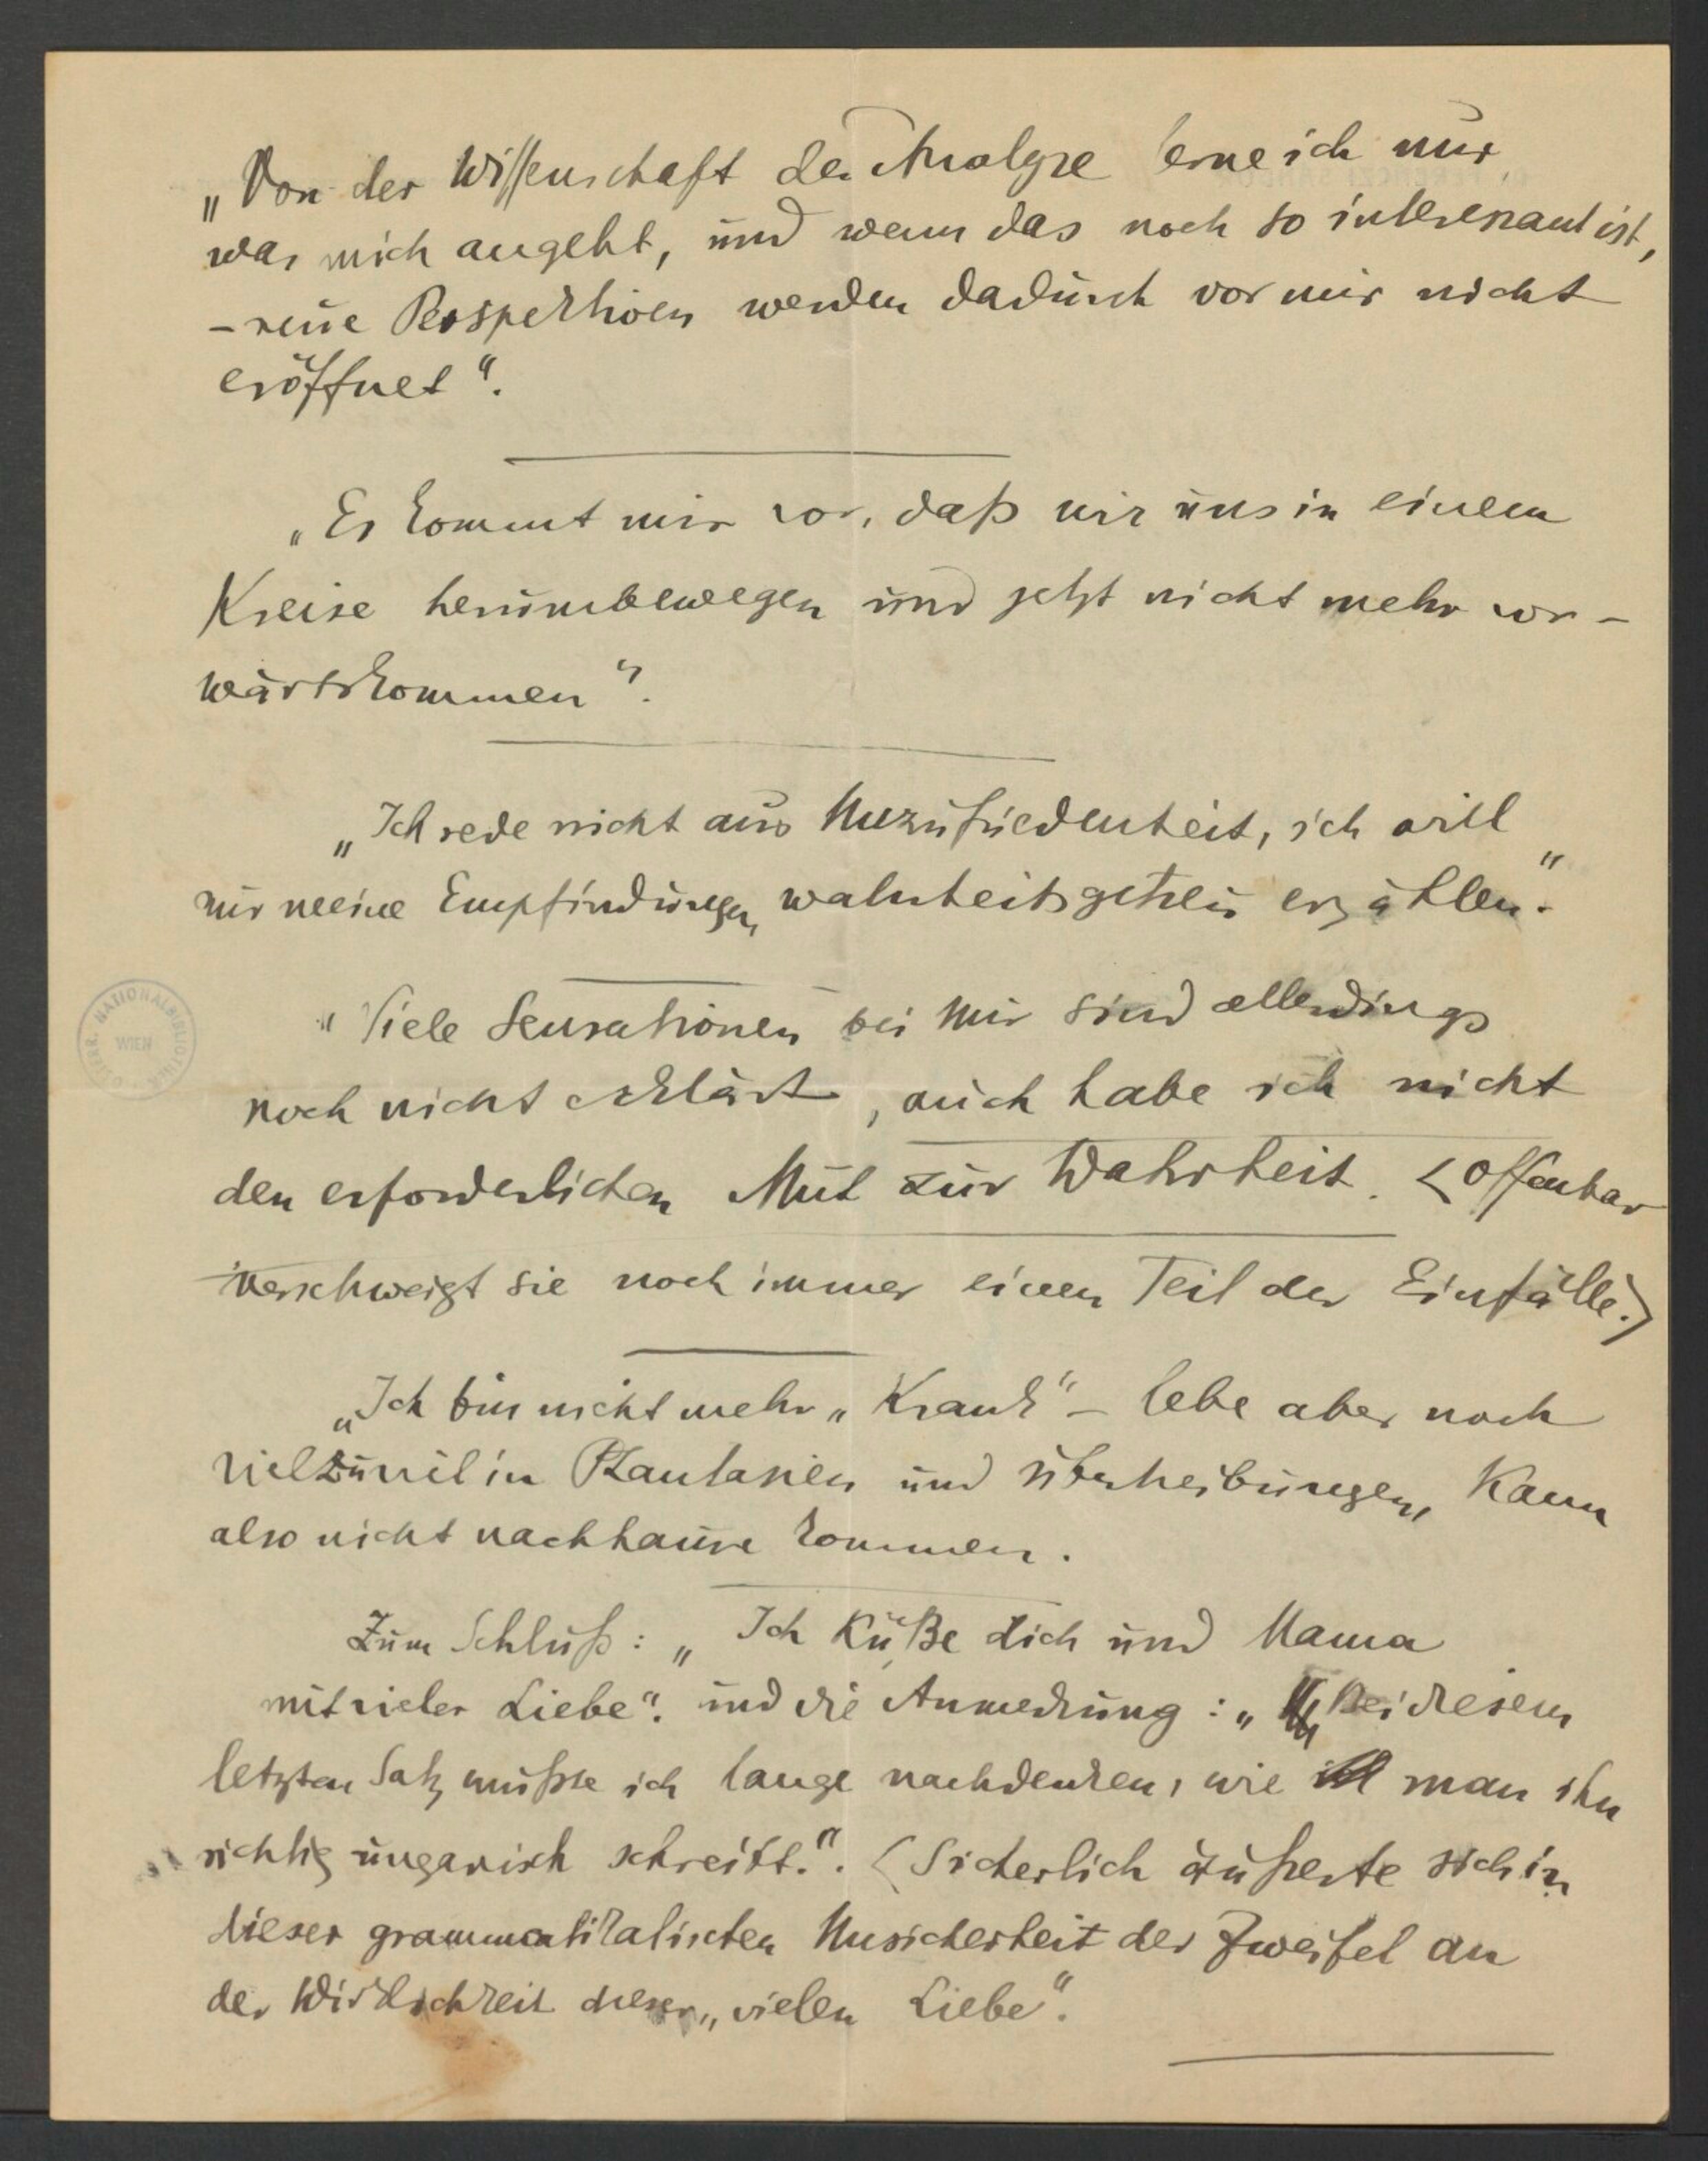 „Von der Wissenschaft der Analyse lerne ich nur,
was mich angeht, und wenn das noch so interessant ist,
– neue Perspektiven werden dadurch vor mir nicht
eröffnet“.
„Es kommt mir vor, daß wir uns in einem
Kreise herumbewegen und jetzt nicht mehr vor-
wärtskommen“.
„Ich rede nicht aus Unzufriedenheit, ich will
nur meine Empfindungen wahrheitsgetreu erzählen.“
„Viele Sensationen bei mir sind allerdings
noch nicht erklärt, auch habe ich nicht
den erforderlichen Mut zur Wahrheit. <Offenbar
verschweigt sie noch immer einen Teil der Einfälle.>
„Ich bin nicht mehr „Krank“ – lebe aber noch
viel zu viel in Phantasien und Übertreibungen, kann
also nicht nachhause kommen.
Zum Schluß: „Ich küße dich und Mama
mit vieler Liebe“. und die Anmerkung: „Bei diesem
letzten Satz mußte ich lange nachdenken, wie man ihn
richtig ungarisch schreibt.“. (Sicherlich äußerte sich in
dieser grammatikalischen Unsicherheit der Zweifel an
der Wirklichkeit dieser „vielen Liebe“.
ÖSTERR. NATIONALBIBLIOTHEK
WIEN